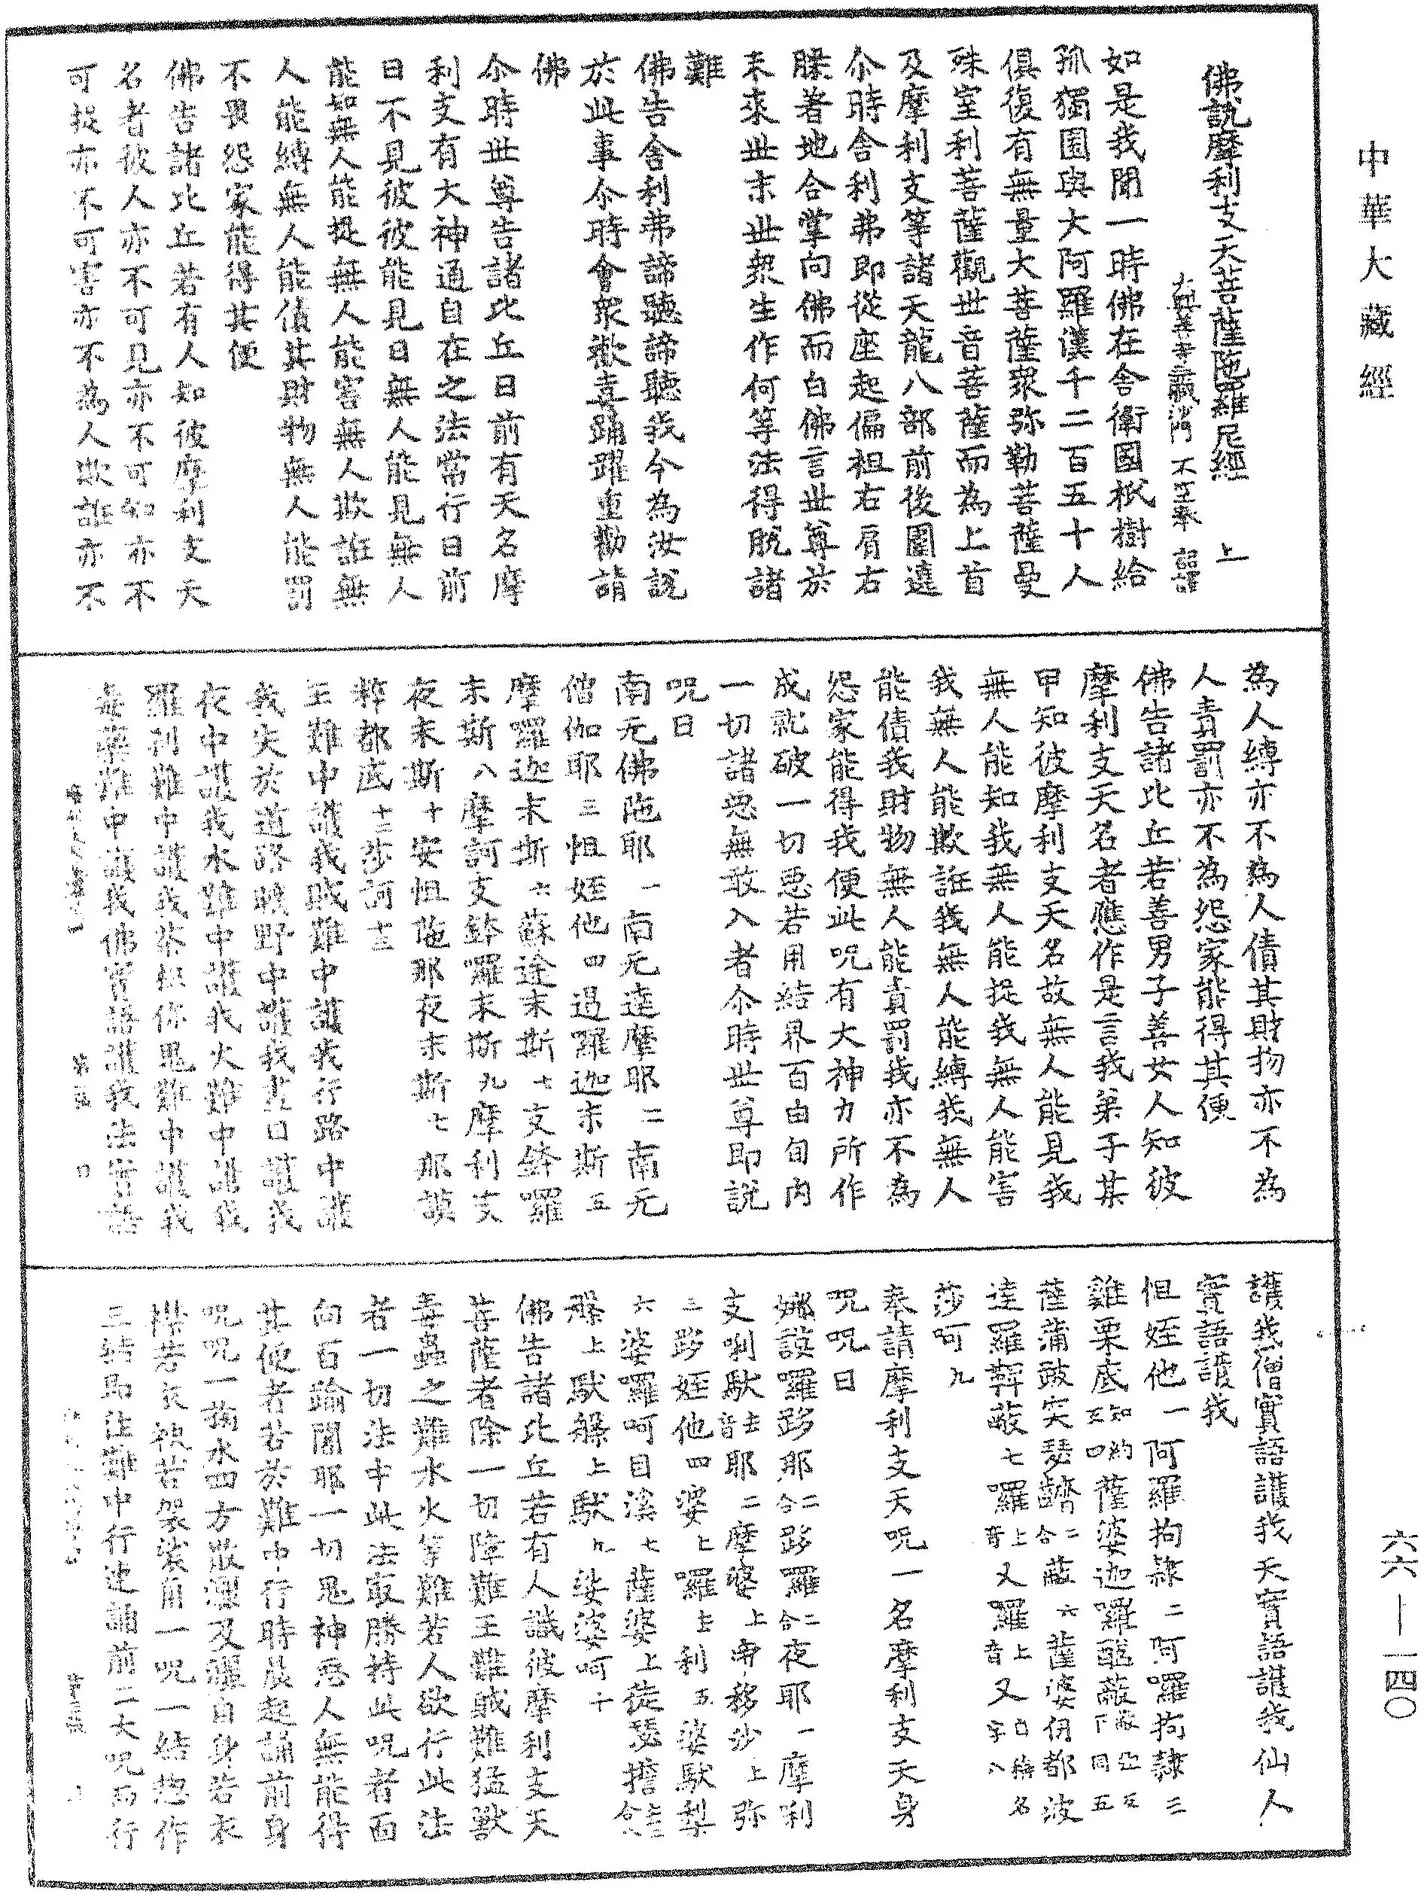 中華大藏經
佛說摩利支天菩薩陁羅尼經 上
大興善寺三藏沙門 不空奉 詔譯
如是我聞一時佛在舍衛國祇樹給
孤獨園與大阿羅漢千二百五十人
俱復有無量大菩薩衆弥勒菩薩曼
殊室利菩薩觀世音菩薩而為上首
及摩利支等諸天龍八部前後圍遶
尒時舍利弗即從座起偏袒右肩右
膝著地合掌向佛而白佛言世尊於
未來世末世衆生作何等法得脫諸
難
佛告舍利弗諦聽諦聽我今為汝說
於此事尒時會衆歡喜踊躍重勸請
佛
尒時世尊告諸比丘日前有天名摩
利支有大神通自在之法常行日前
日不見彼彼能見日無人能見無人
能知無人能捉無人能害無人欺誑無
人能縛無人能債其財物無人能罰
不畏怨家能得其便
佛告諸比丘若有人知彼摩利支天
名者彼人亦不可見亦不可知亦不
可捉亦不可害亦不為人欺誑亦不
為人縛亦不為人債其財物亦不為
人責罰亦不為怨家能得其便
佛告諸比丘若善男子善女人知彼
摩利支天名者應作是言我弟子某
甲知彼摩利支天名故無人能見我
無人能知我無人能捉我無人能害
我無人能欺誑我無人能縛我無人
能債我財物無人能責罰我亦不為
怨家能得我便此咒有大神力所作
成就破一切惡若用結界百由旬內
一切諸惡無敢入者尒時世尊即說
咒曰
南无佛陁耶一南无達摩耶二南无
僧伽耶三怛姪他四遏羅迦末斯五
摩囉迦末斯六蘇途末斯七支鉢囉
末斯八摩訶支鉢囉末斯九摩利支
夜末斯十安怛陁那夜末斯七那謨
粹都底十二莎訶十三
王難中護我賊難中護我行路中護
我失於道路曠野中護我晝日護我
夜中護我水難中護我火難中護我
羅剎難中護我荼枳你鬼難中護我
毒藥難中護我佛實語護我法實語
護我僧實語護我天實語護我仙人
實語護我
怛姪他一阿羅拘隸二阿囉拘隸三
雞栗底知約五四薩婆迦囉醯蔽
薩蒲跛突瑟鰽合二蔽六薩婆伊都波
達羅鞞蔽七囉上音又羅上音又自稱名字八
莎呵九
奉請摩利支天咒一名摩利支天身
咒咒曰
娜謨囉跢耶合二跢羅合二夜耶一摩利
支唎馱去音耶二摩婆上帝移沙上弥
三跢姪他四婆上囉去利五婆馱梨
六婆囉呵目溪七薩婆上徒瑟擔
槃上馱槃上馱九娑婆呵十
佛告諸比丘若有人識彼摩利支天
菩薩者除一切障難王難賊難猛獸
毒蟲之難水火等難若人欲行此法
者一切法中此法最勝持此咒者面
向百踰闍耶一切鬼神惡人無能得
其便者若於難中行時晨起誦前身
咒咒一掬水四方散灑及灑自身若衣
襟若衣袂若袈裟角一咒一結揔作
三結即往難中行次誦前二大咒而行
六六—一四〇